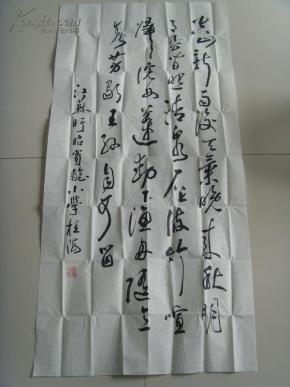 空山新雨後天氣晚來秋明
月松間照清泉石上流竹喧
歸浣女蓮動下漁舟隨意
春芳歇王孫自可留
江蘇盱眙實驗小學